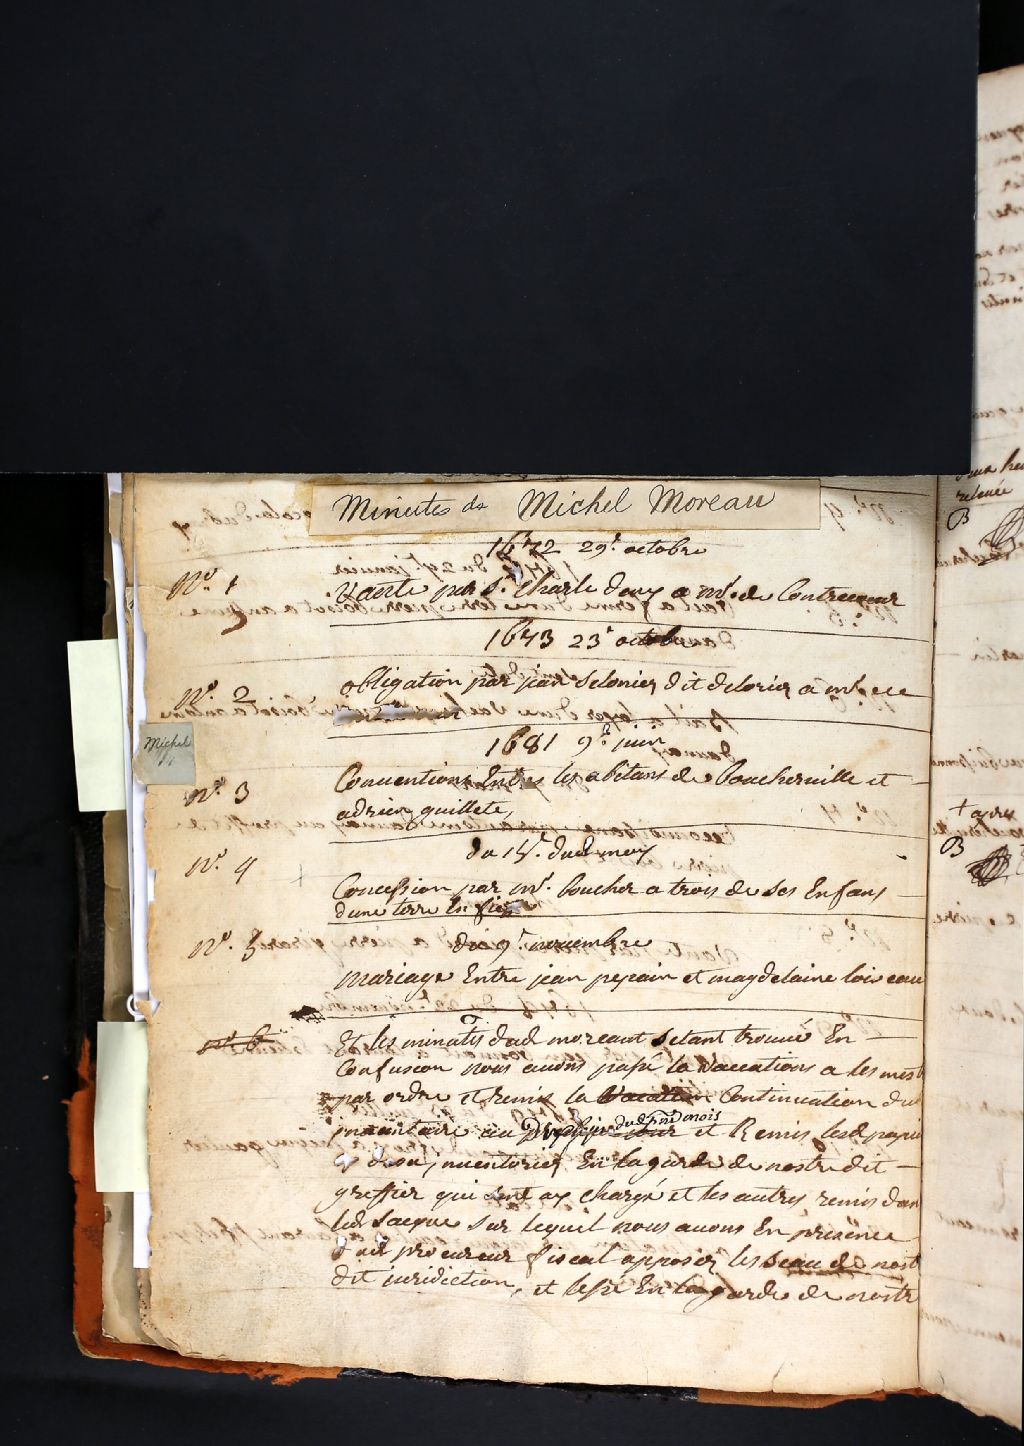 Minutes de Michel Moreau
1672 29e. octobre
No. 1
Vante par Sr. Charle denys a mr. de Contrecoeur
1673 23e octobre
No. 2
obligation par jean delonier dit delorier a
1681 9e. juin
Michel
No. 3
Conventions Entre les abitans de Boucherville et
adrien quillete
du 15e. dud mois
No. 4
Concession par mr. boucher a trois de ses Enfans
dune terre En fief
No. 5
du 9e novembre
mariage Entre jean pepain et magdelaine loiseau
no 6
Et les minutes dud moreaut Setant trouvé En
Confusion nous auons passé la Vaccations a les
par ordre et remis la Vacation Continuation
inuantaire au dud pnt mois et Remis lesd
de inuentoriez En la garde de nostre dit
greffier qui sent ay chargé et les autres remis dan
led sacque sur lequel nous auons En présence
dud procureur fiscal apposez les seau de nost
dit juridiction, et lessé En la garde de nostre